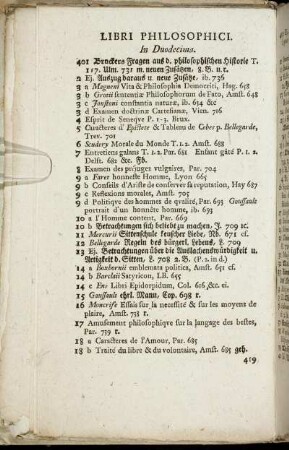 LIBRI PHILOSOPHICI.
In Duodecimo.
401 Bruckers Fragen aus d. philosophischen Historie T.
1-7. Ulm. 731 m. neuen Zusätzen. 8. B. u. t.
2 Ej. Auszug daraus u. neue Zusätze. ib. 736
3 a Magneni Vita & Philosophia Democriti, Hag. 658
3 b Grotii sententiæ Philosophorum de Fato, Amst. 648
3 c Jonstoni constantia naturæ, ib. 634 &c
3 d Examen doctrinæ Cartesianæ, Vien. 716
4 Esprit de Seneqve P. 1-3. Brux.
5 Caracteres d' Epictete & Tableau de Cebes p. Bellegarde,
Trev. 701
6 Scudery Morale du Monde T. 1. 2. Amst. 688
7 Entretiens galans T. 1. 2. Par. 681 Enfant gâté P. 1. 2.
Delft. 682 &c. Fb.
8 Examen des prejuges vulgaires, Par. 704
9 a Faret honneste Homme, Lyon 665
9 b Conseils d'Ariste de conserver sa reputation, Hay 687
9 c Reflexions morales, Amst. 695
9 d Politiqve des hommes de qvalité, Par. 693 Goussault
portrait d'un honnête homme, ib. 693
10 a l' Homme content, Par. 669
10 b Betrachtungen sich beliebt zu machen. J. 709 ꝛc.
11 Mercurii Sittenschule teutscher Liebe. Nb. 671 cf.
12 Bellegarde Regeln des bürgerl. Lebens, L. 709
13 Ej. Betrachtungen über die Auslachenswürdigkeit u.
Artigkeit d. Sitten, L. 708 2 B. (P. 2. in d.)
14 a Boxhornii emblemata politica, Amst. 651 cf.
14 b Barclaii Satyricon, LB. 645
14 c Eus Libri Epidorpidum, Col. 606, &c. ei.
15 Goussouls ehrl. Mann, Cop. 698 r.
16 Moncrifs Essais sur la necessité & sur les moyens de
plaire, Amst. 738 r.
17 Amusement philosophiqve sur la langage des bestes,
Par. 739 r.
18 a Caracteres de l'Amour, Par. 685
18 b Traité du libre & du volontaire, Amst. 685 geh.
419